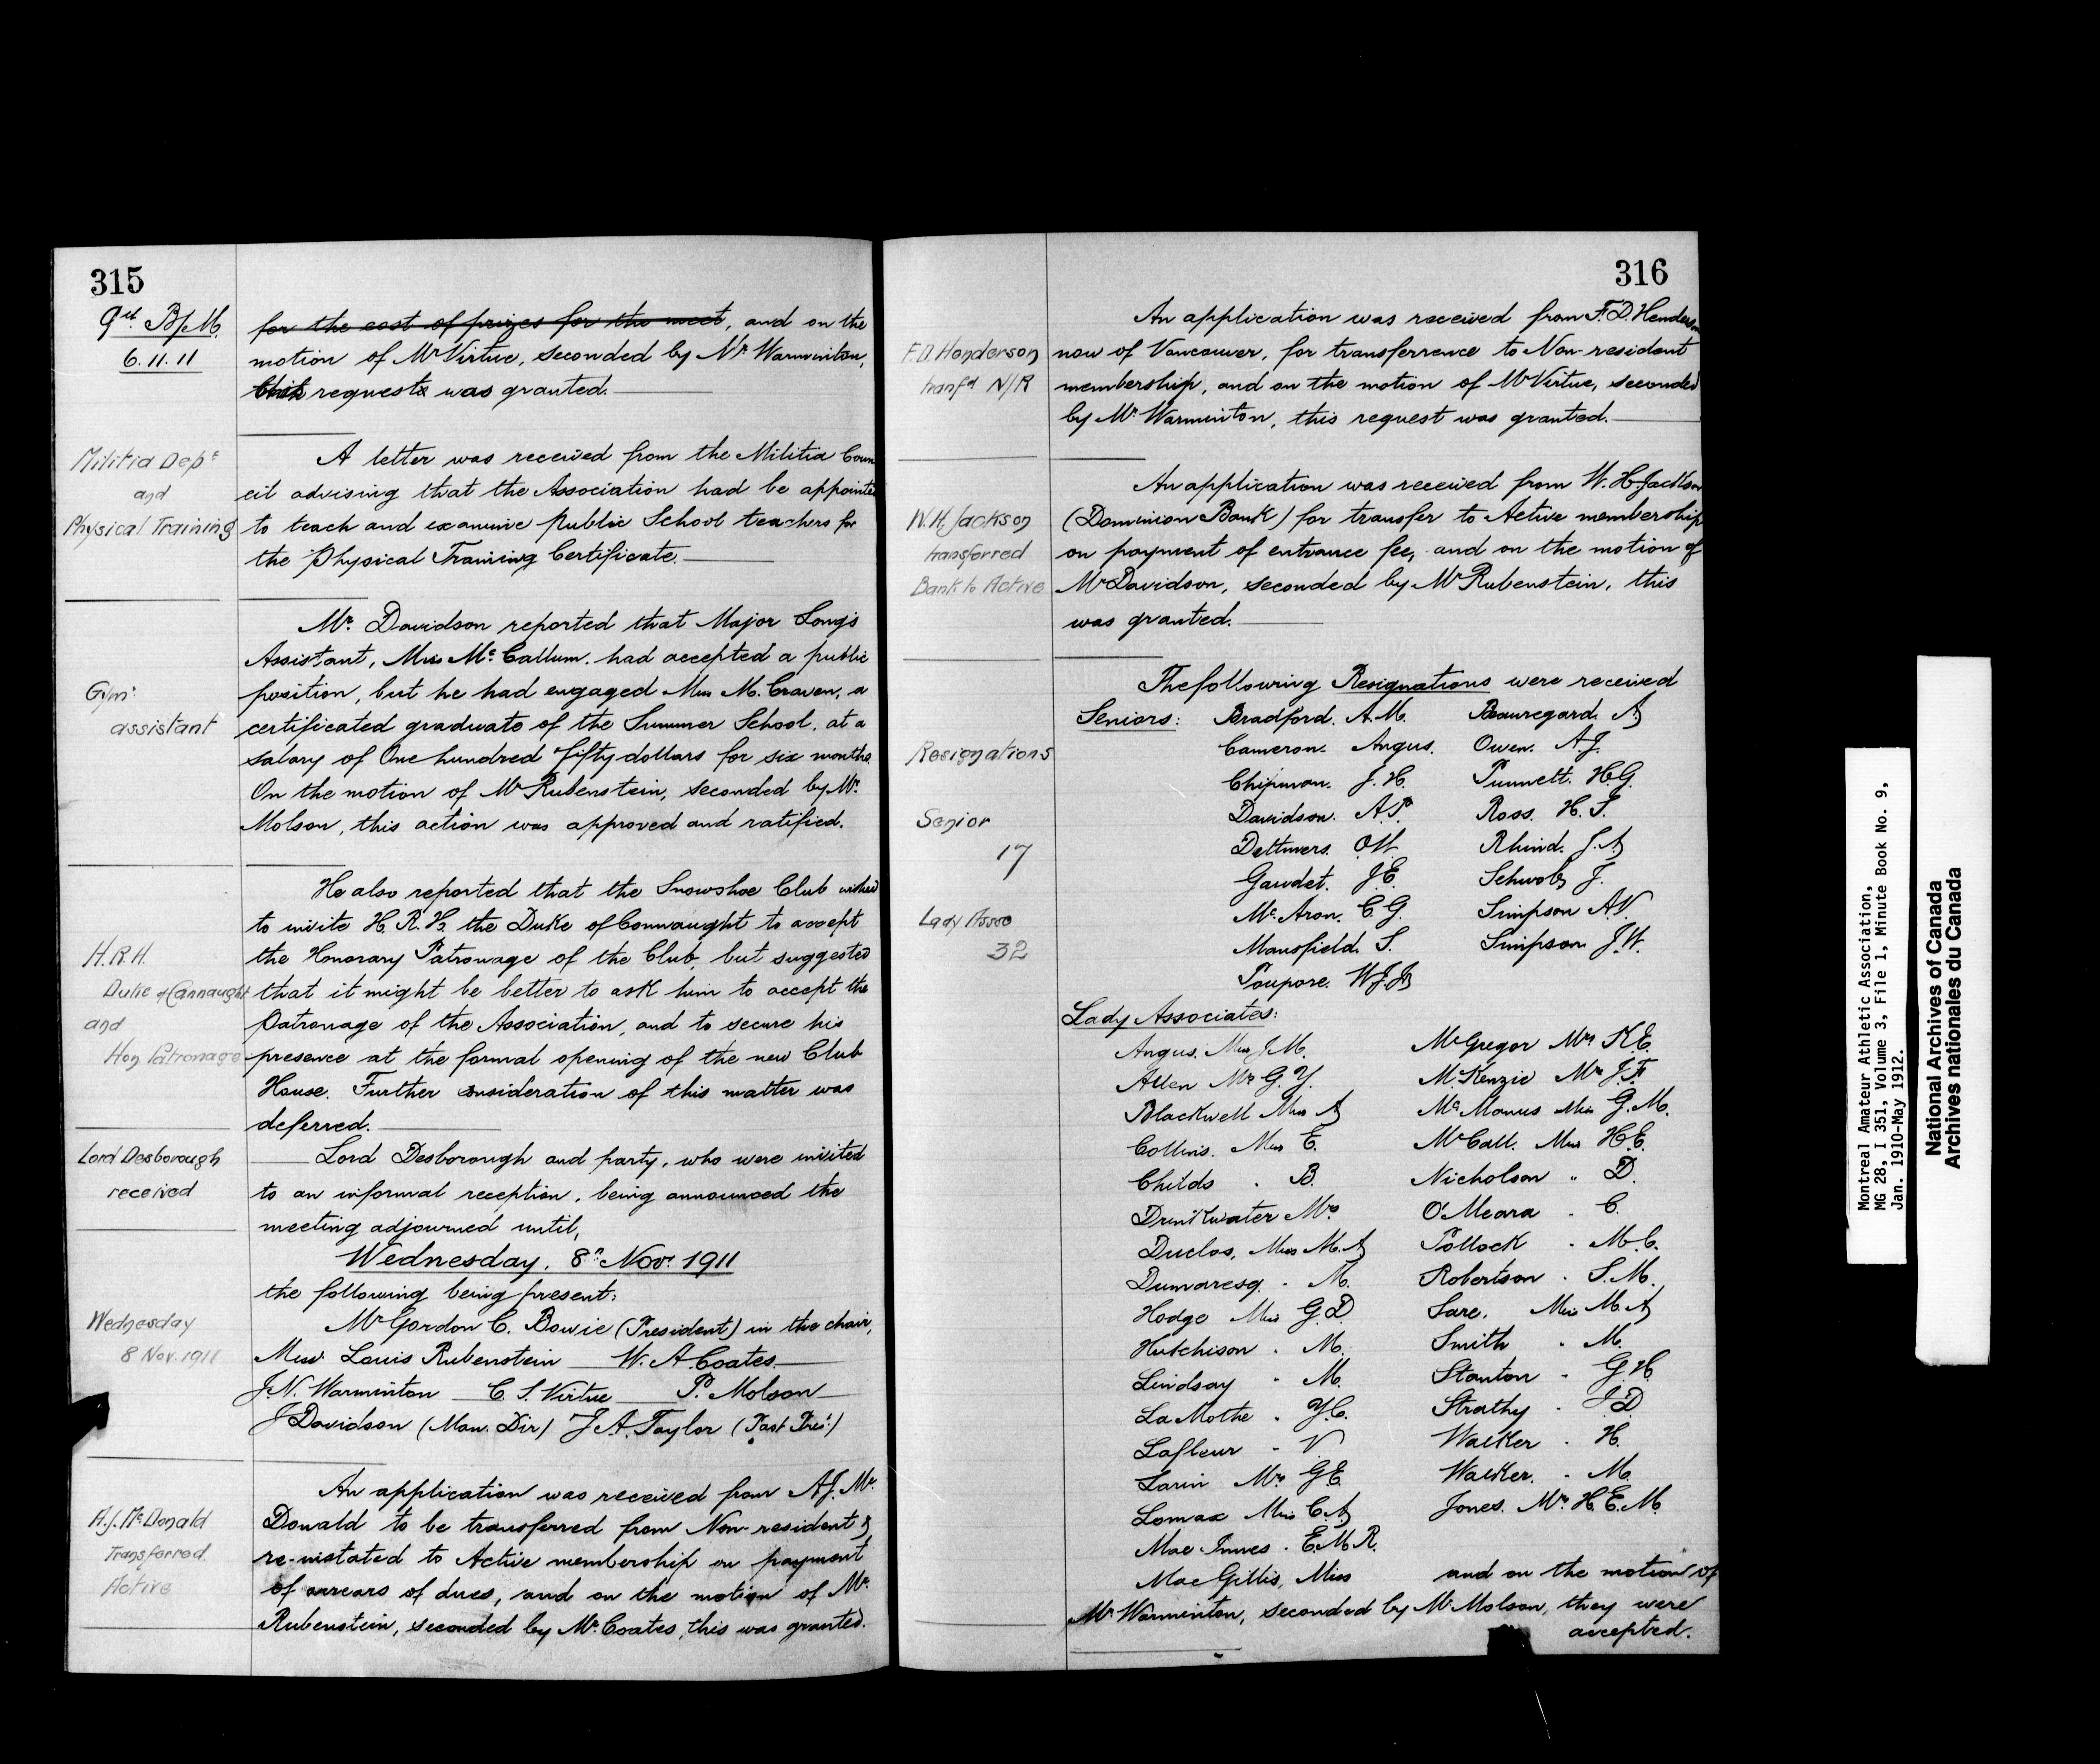 315
9th B/M.
6.11.11
for the cost of prizes for the meet, and on the
motion of Mr Virtue, seconded by Mr Warminton,
request was granted.
Militia Dept
and
Physical Training
A letter was received from the Militia Coun
cil advising that the Association had be appointed
to teach and examine Public School teachers for
the Physical Training Certificate.
Gym:
assistant
Mr. Davidson reported that Major Long's
Assistant, Miss McCallum. had accepted a public
position, but he had engaged Miss M. Craven, a
certificated graduate of the Summer School, at a
salary of One hundred fifty dollars for six months.
On the motion of Mr Rubenstein, seconded by Mr.
Molson, this action was approved and ratified.
H.R.H.
Duke of Connaught
and
Hon Patronage
He also reported that the Snowshoe Club wished
to invite H.R.H. the Duke of Connaught to accept
the Honorary Patronage of the Club, but suggested
that it might be better to ask him to accept the
Patronage of the Association, and to secure his
presence at the formal opening of the new Club
House. Further consideration of this matter was
deferred.
Lord Desborough
received
Lord Desborough and party, who were invited
to an informal reception, being announced the
meeting adjourned until,
Wednesday, 8th Nov. 1911
the following being present:
Wednesday
8 Nov. 1911
Mr Gordon C. Bowie (President) in the chair,
Messrs Louis Rubenstein W. A. Coates.
J.N. Warminton C. S. Virtue P. Molson
J Davidson (Man. Dir) J. A. Taylor (Past Pres:)
A.J. McDonald
Transferred.
Active
An application was received from A.J. Mc
Donald to be transferred from Non-resident &
re-instated to Active membership on payment
of arrears of dues, and on the motion of Mr.
Rubenstein, seconded by Mr. Coates, this was granted.
316
F.D. Henderson
transfd N/R
An application was received from F.D. Henderson
now of Vancouver, for transferrence to Non-resident
membership, and on the motion of Mr Virtue, seconded
by Mr. Warminton, this request was granted.
W.H. Jackson
transferred
Bank to Active
An application was received from W.H. Jackson
(Dominion Bank) for transfer to Active membership
on payment of entrance fee, and on the motion of
Mr Davidson, seconded by Mr Rubenstein, this
was granted.
Resignations
Senior
17
Lady Asso
32
The following Resignations were received
Seniors: Bradford. A.M. Beauregard. A
Cameron. Angus. Owen. A.J.
Chipman. J.H. Punnett. H.G.
Davidson. A.P. Ross. H.S.
Dettmers. O.W. Rhind. J.A
Gaudet. J.E. Schwob, J.
McAron. C.G. Simpson A.V.
Mansfield. S. Simpson J.W.
Poupore. W.J.
Lady Associates:
Angus. Miss J.M. McGregor Mrs K.E.
Allen Mrs G.Y. McKenzie Mrs J.F.
Blackwell Miss A McManus Miss G.M.
Collins. Miss E. McCall. Miss H.E.
Childs " B. Nicholson " D.
Drinkwater Mrs O'Meara " C.
Duclos, Miss M.A Pollock " M.C.
Dumaresq " M. Robertson " S.M.
Hodge Miss G.D. Sare. Miss M.A
Hutchison " M. Smith " M.
Lindsay " M. Stanton " G.H.
LaMothe " Y.C. Strathy " J.D.
Lafleur " V Walker " H.
Larin Mrs G.E. Walker. " M.
Lomax Miss C.A Jones. Mrs H.E.M.
MacInnes " E.M.R.
MacGillis, Miss and on the motion of
Mr Warminton, seconded by Mr Molson, they were
accepted.
Montreal Amateur Athletic Association,
MG 28, I 351, Volume 3, File 1, Minute Book No. 9,
Jan. 1910-May 1912.
National Archives of Canada
Archives nationales du Canada